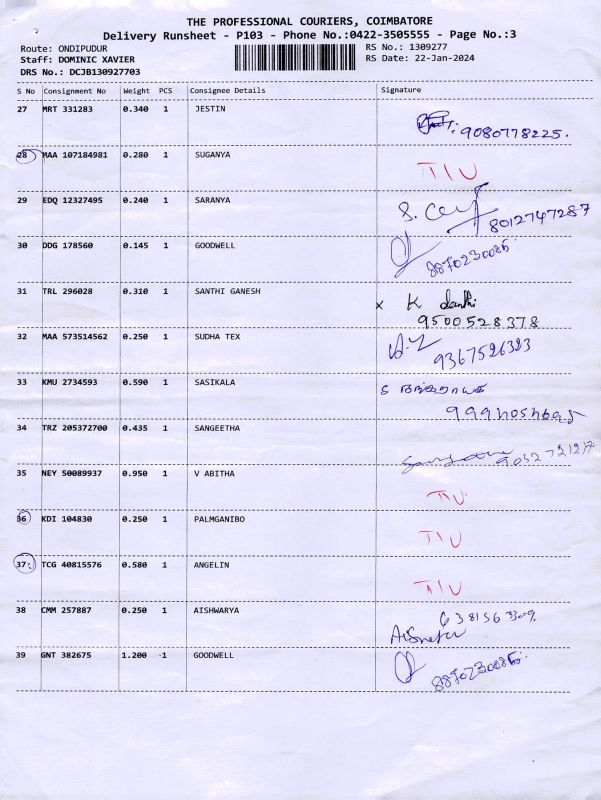 THE PROFESSIONAL COURIERS, COIMBATORE
Delivery Runsheet - P103 - Phone No.:0422-3505555 - Page No.:3
Route: ONDIPUDUR RS No.: 1309277
Staff: DOMINIC XAVIER RS Date: 22-Jan-2024
DRS No.: DCJB130927703
S No Consignment No Weight PCS Consignee Details Signature
27 MRT 331283 0.340 1 JESTIN
9080778225.
28 MAA 107184981 0.280 1 SUGANYA
29 EDQ 12327495 0.240 1 SARANYA
8012747287
30 DDG 178560 0.145 1 GOODWELL
8870230085
31 TRL 296028 0.310 1 SANTHI GANESH
x K
9500528378
32 MAA 573514562 0.250 1 SUDHA TEX
9367526323
33 KMU 2734593 0.590 1 SASIKALA
34 TRZ 205372700 0.435 1 SANGEETHA
35 NEY 50089937 0.950 1 V ABITHA
36 KDI 104830 0.250 1 PALMGANIBO
37 TCG 40815576 0.580 1 ANGELIN
38 CMM 257887 0.250 1 AISHWARYA
6381563309.
39 GNT 382675 1.200 1 GOODWELL
8870230085